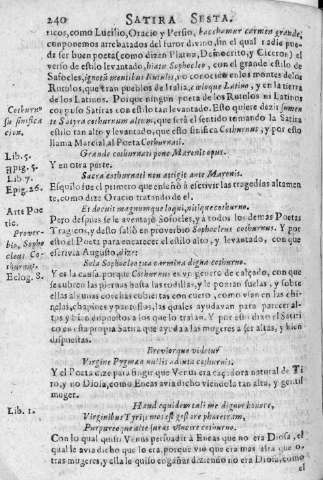 240 SATIRA SESTA.
ricos, como Lucilio, Oracio y Persio, bacchamur carmen grande,
componemos arrebatados del furor divino, sin el qual nadie pue-
de ser buen poeta (como dizen Platon, Democrito, y Ciceron) el
verso de estilo levantado, hiatu Sophocleo, con el grande estilo de
Safocles, ignotũ montibus Rutulis, no conocido en los montes de los
Rutulos, que eran pueblos de Italia, cæloque Latino, y en la tierra
de los Latinos. Porque ningun poeta de los Rutulos ni Latinos
compuso Satiras con estilo tan levantado. Esto quiere dezir
Satyra cothurnum altum, que será el sentido tomando la Satira
estilo tan alto y levantado, que esto sinifica Cothurnus, y por esto
llama Marcial al Poeta Cothurnati.
Cothurnus
sinifica
cion.
Lib. 5.
Epig. 5.
Grande cothurnati pone Maronis opus.
Y en otra parte.
Lib. 7.
Epig. 26.
Sacra cothurnati non attigit ante Maronis.
Esquilo fue el primero que enseñó à escrivir las tragedias altamen-
te, como dize Oracio tratando de el.
Arte Poe
tic.
Et docuit magnumque loqui, nitique cothurno.
Pero despues se le aventajó Sofocles, y a todos los demas Poetas
Tragicos, y desto salió en proverbio Sophocleus cothurnus. Y por
esto el Poeta para encarecer el estilo alto, y levantado, con que
escrivia Augusto, dize:
Prover-
bio, Sopho
cleus Co-
thurnus.
Eclog. 8.
Sola Sophocleo tua carmina digna cothurno.
Y es la causa porque Cothurnus es un genero de calçado, con que
se cubren las piernas hasta las rodillas, y le ponian suelas, y sobre
ellas algunas corchas cubiertas con cuero, como vsan en las chi-
nelas, chapines y pantuflos, las quales ayudavan para parecer al-
tos y bien dispuestos a los que lo traian. Y por esto dixo el Satiri-
co en esta propia Satira que ayudava a las mugeres a ser altas, y bien
dispuestas.
Breviorque videtur
Virgine Pygmæa nullis adiuta cothurnis.
Y el Poeta dize para fingir que Venus era caçadora natural de Ti
ro, y no Diosa, como Eneas avia dicho viendola tan alta, y gentil
muger.
Lib. 1.
Haud equidem tali me dignor honore,
Virginibus Tyrijs mos est gestare pharetram,
Purpureoque alte suras vincire cothurno.
Con lo qual quiso Venus persuadir à Eneas que no era Diosa, el
qual le avia dicho que lo era, porque vio que era mas alta que o-
tras mugeres, y ella le quiso engañar diziendo no era Diosa, como
el